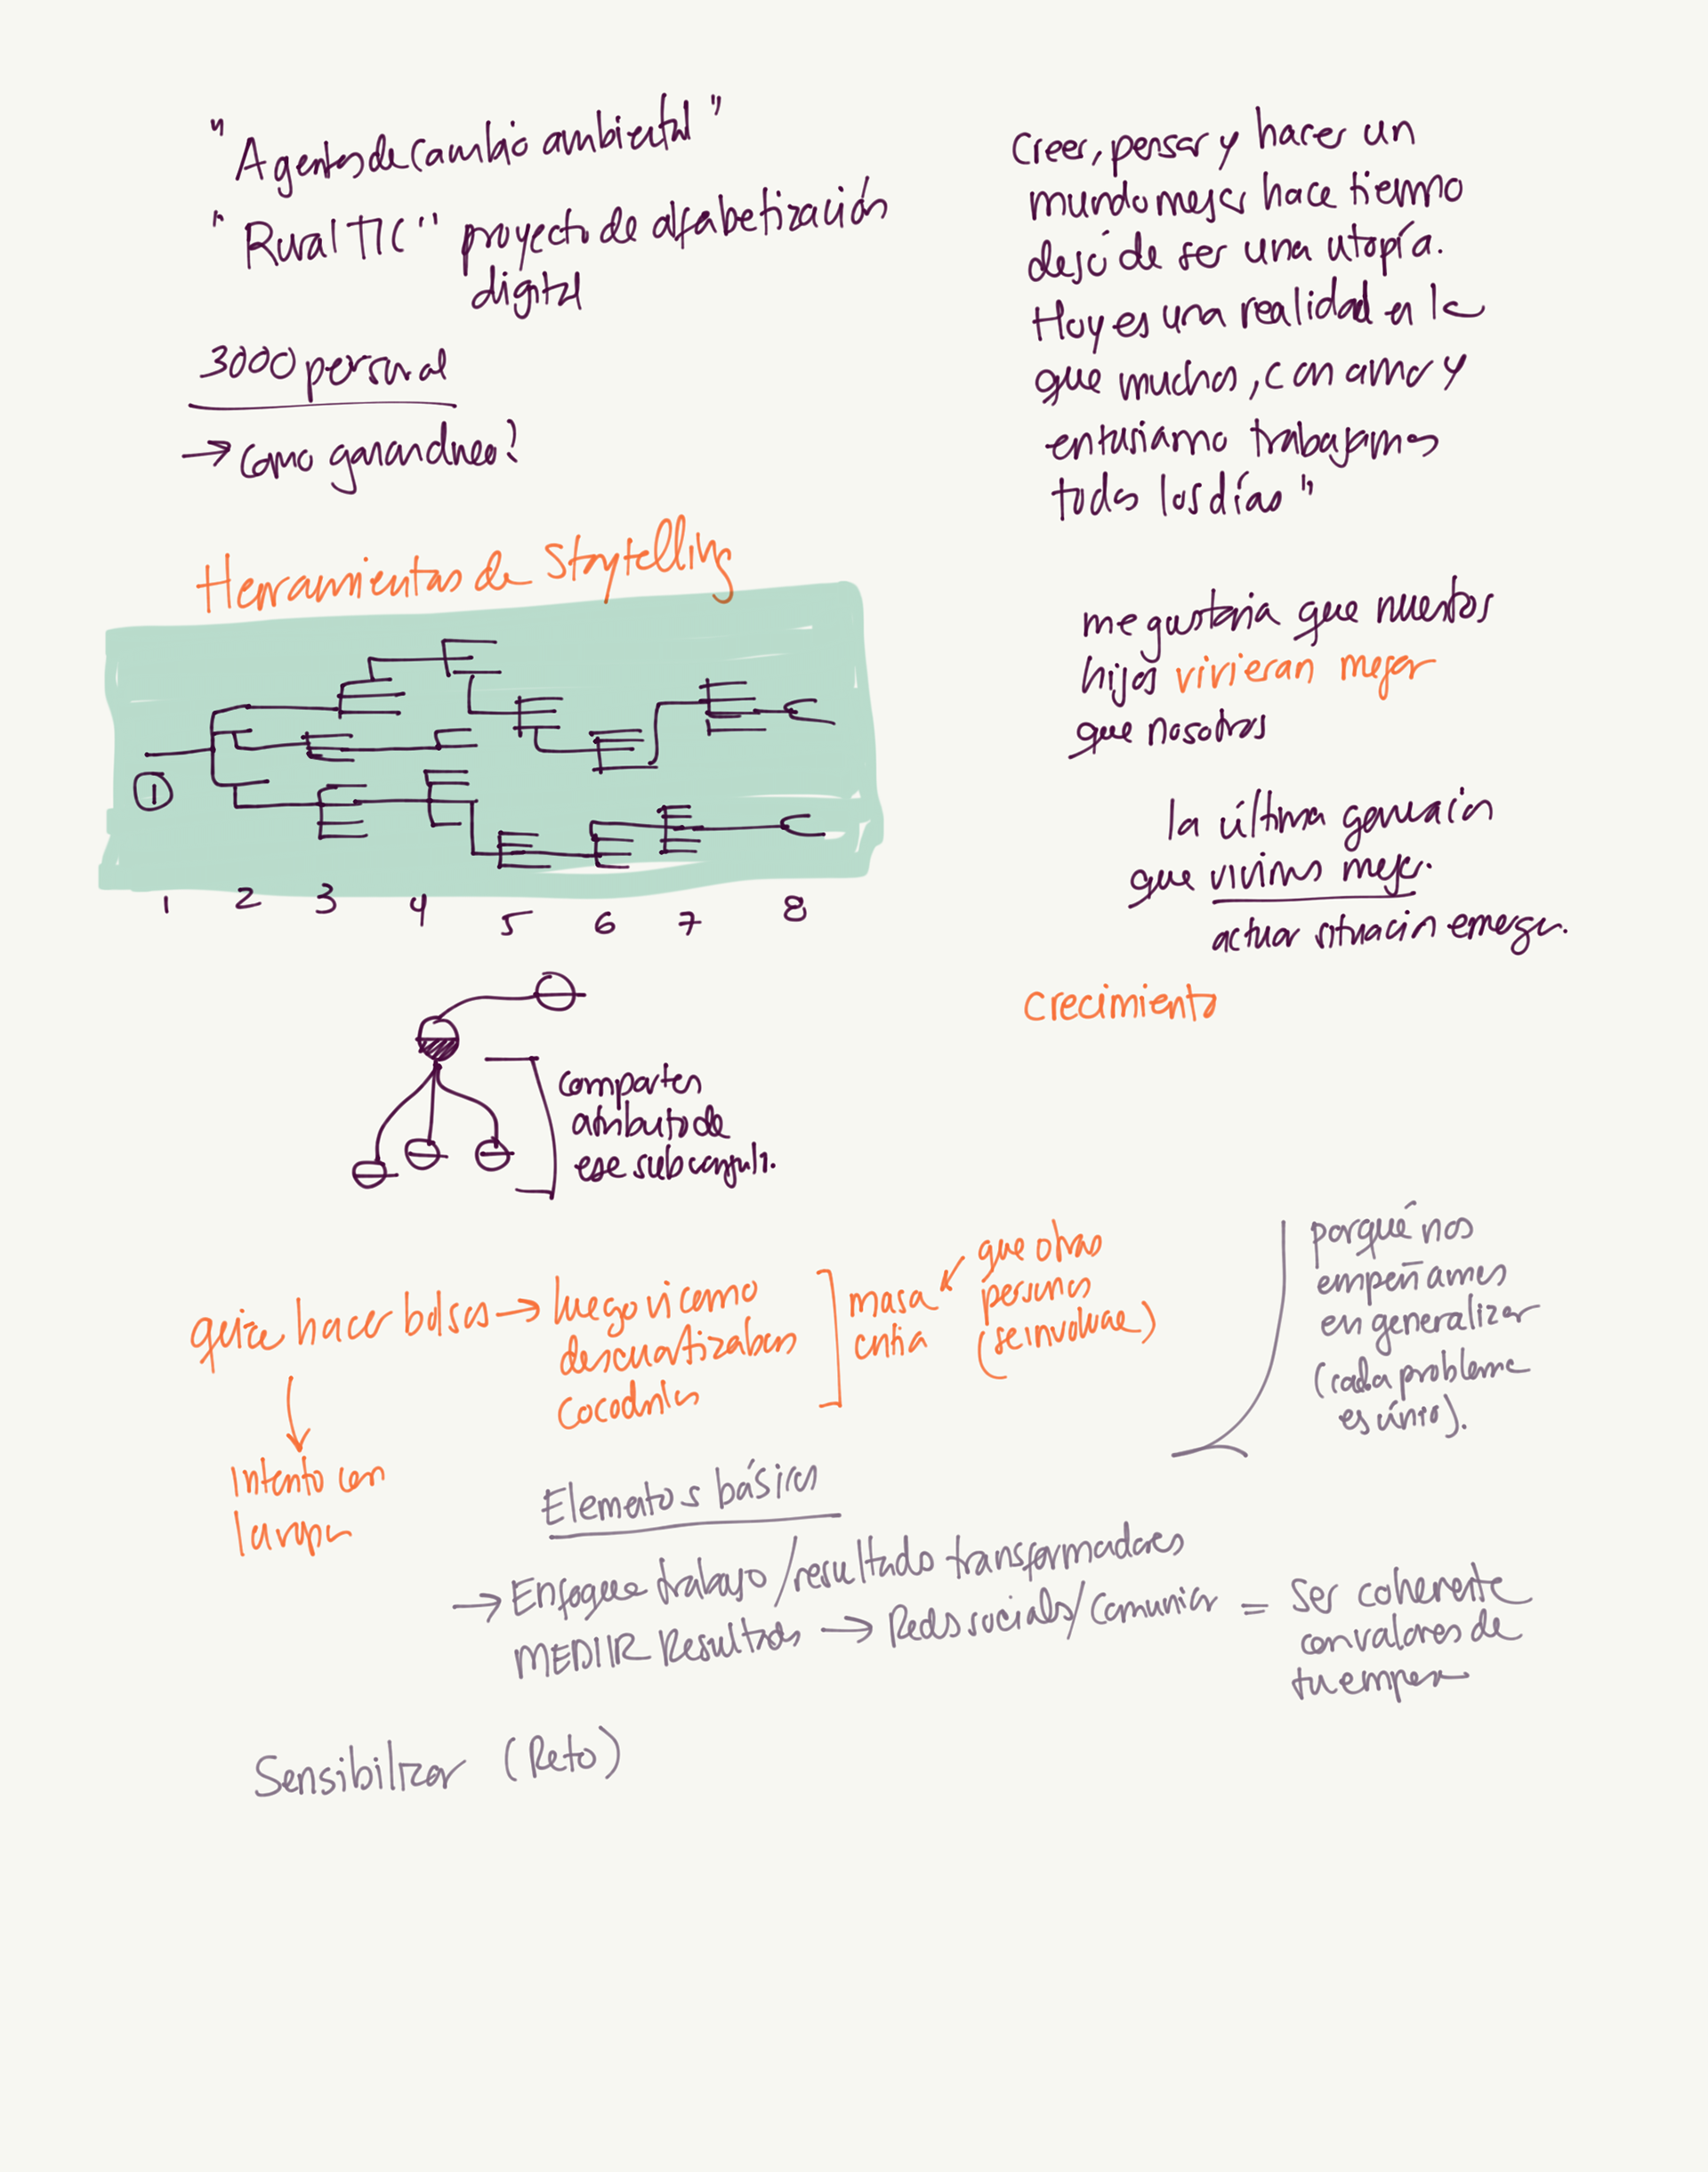 "Agentes de cambio ambiental"
"Rural TIC" proyecto de alfabetización
digital
3000 personal
→ como ganar dinero?
Herramientas de Storytelling
1
1 2 3 4 5 6 7 8
comparten
atributo de
ese subconjunt.
Creer, pensar y hacer un
mundo mejor hace tiempo
dejó de ser una utopía.
Hoy es una realidad en la
que muchos, con amor y
entusiasmo trabajamos
todos los días"
me gustaria que nuestros
hijos vivieran mejor
que nosotros
la última generación
que vivimos mejor.
actuar situación emergen.
crecimiento
quise hacer bolsas → luego vi como
descuartizaban
cocodrilos
masa
critia
que otras
personas
(se involucre)
Intento con
la ropa
porqué nos
empeñamos
en generalizar
(cada problema
es único).
Elementos básicos
→ Enfoque trabajo/resultado transformadores
MEDIR Resultados → Redes sociales/comunicar = ser coherente
con valores de
tu empresa
Sensibilizar (Reto)